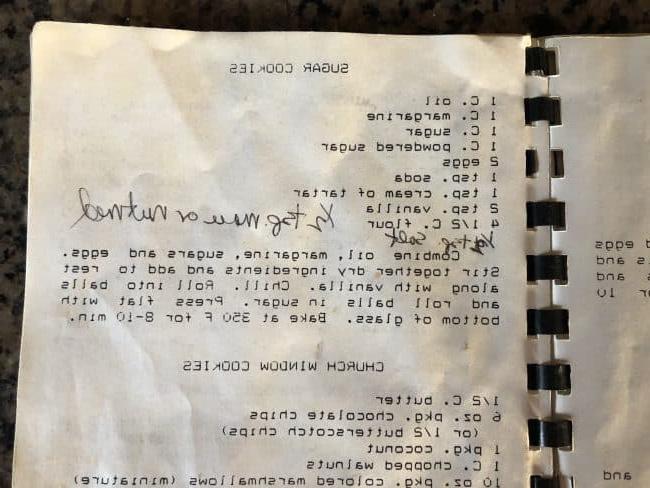 SUGAR COOKIES
1 C. oil
1 C. margarine
1 C. sugar
1 C. powdered sugar
2 eggs
1 tsp. soda
1 tsp. cream of tartar
2 tsp. vanilla
1/2 tsp. mace or nutmeg
4 1/2 C. flour
1/4 tsp. salt
Combine oil, margarine, sugars and eggs.
Stir together dry ingredients and add to rest
along with vanilla. Chill. Roll into balls
and roll balls in sugar. Press flat with
bottom of glass. Bake at 350 F for 8-10 min.
CHURCH WINDOW COOKIES
1/2 C. butter
6 oz. pkg. chocolate chips
(or 1/2 butterscotch chips)
1 pkg. coconut
1 C. chopped walnuts
10 oz. pkg. colored marshmallows (miniature)
eggs
and
and
10
and